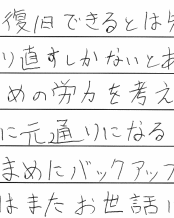 復旧できるとは
り直すしかないとあ
めの労力を考え
に元通りになる
まめにバックアップ
はまたお世話に